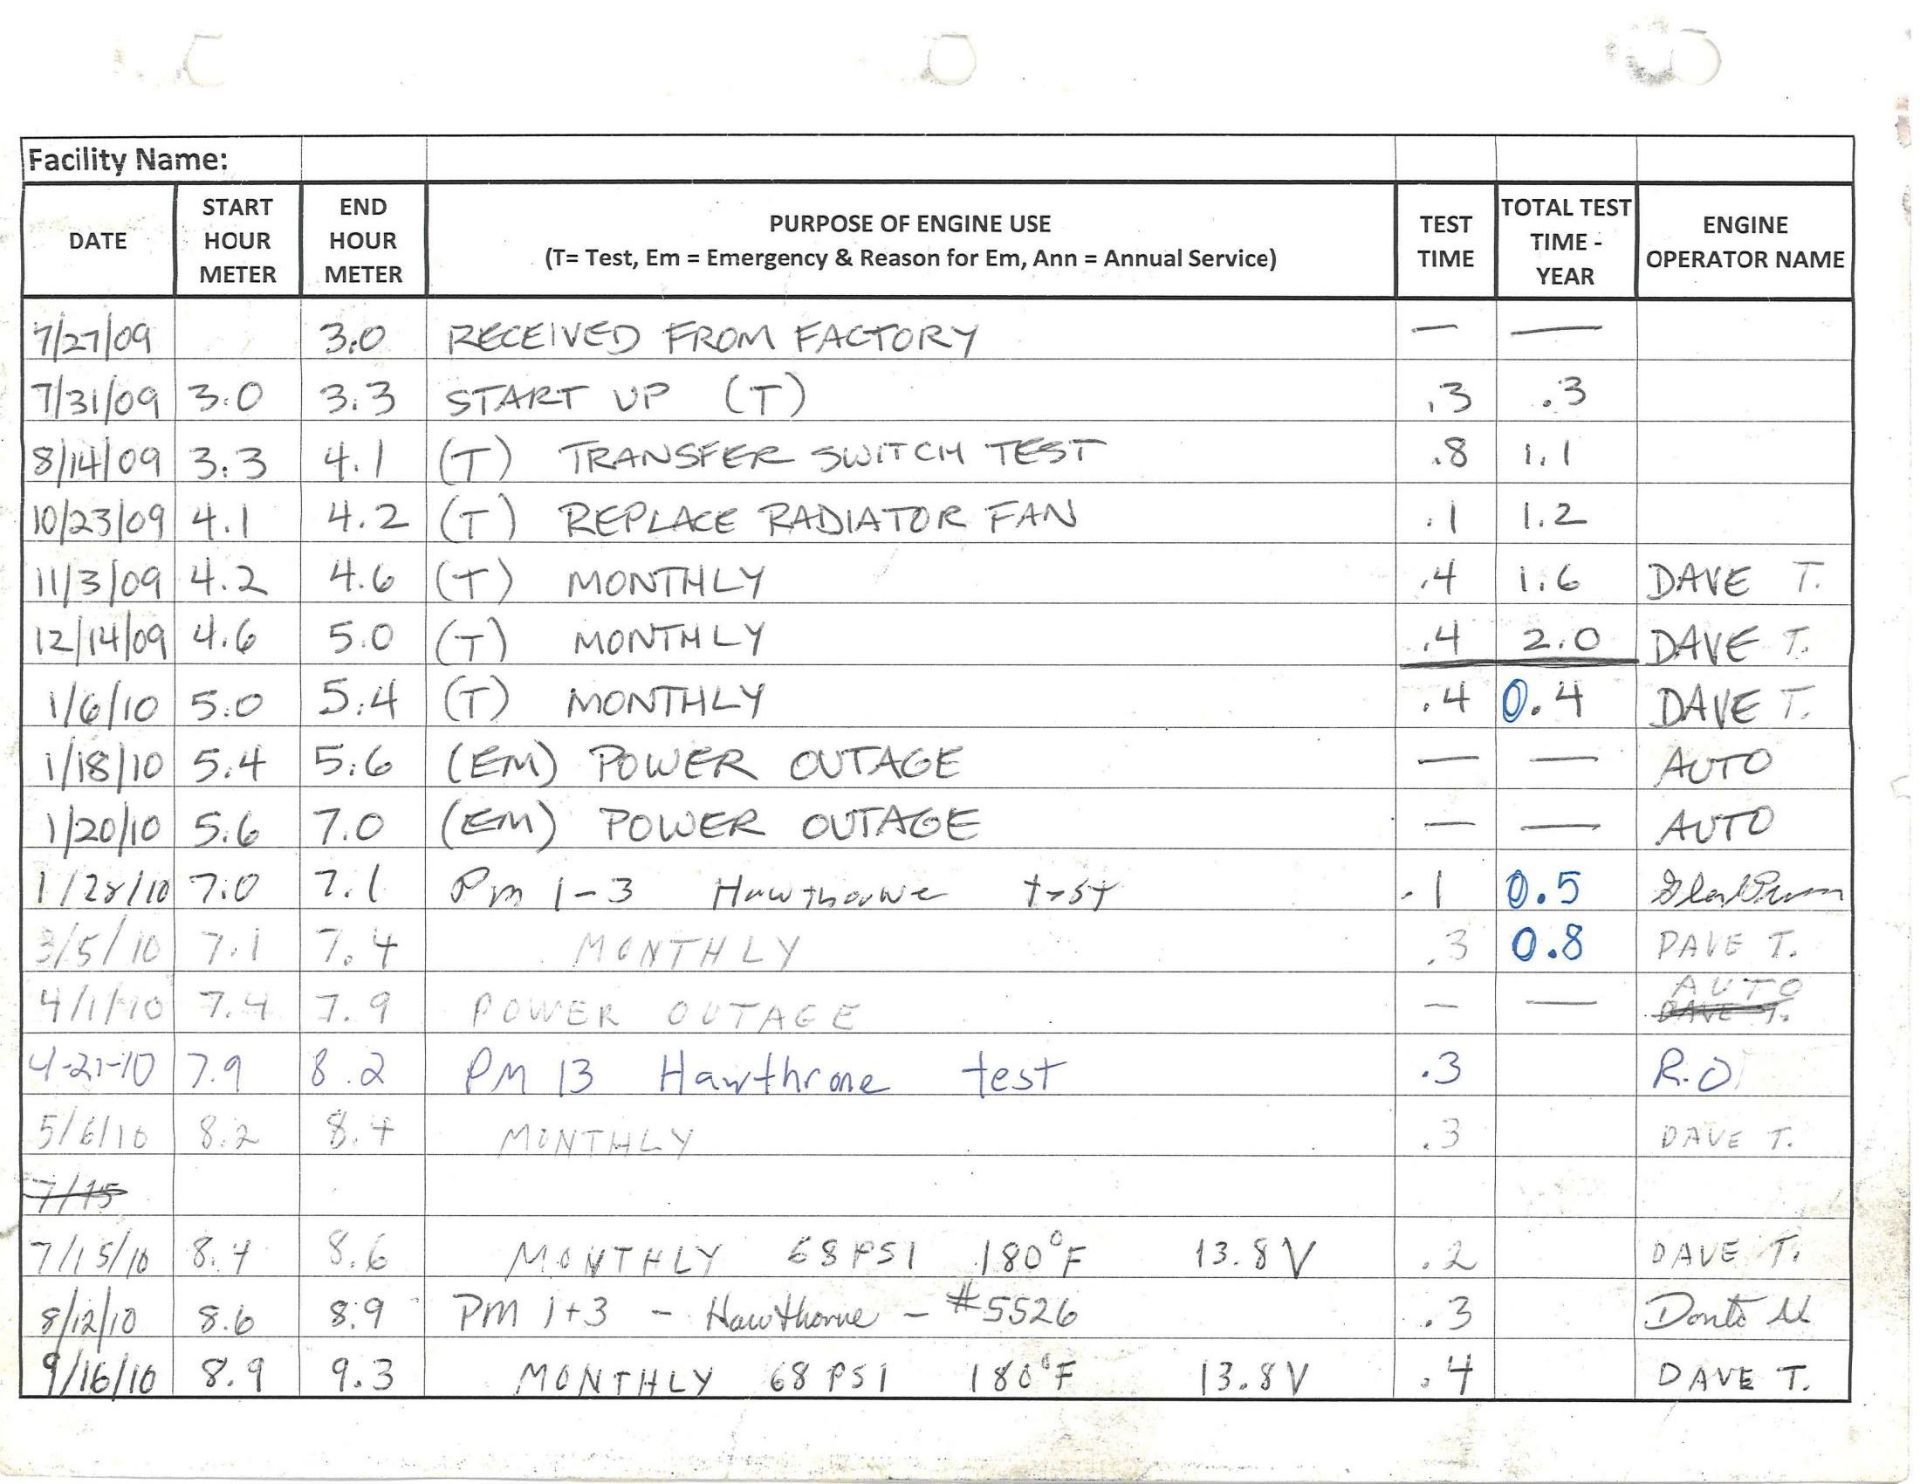 Facility Name:
DATE START HOUR METER END HOUR METER PURPOSE OF ENGINE USE (T= Test, Em = Emergency & Reason for Em, Ann = Annual Service) TEST TIME TOTAL TEST TIME - YEAR ENGINE OPERATOR NAME
7/27/09 3.0 RECEIVED FROM FACTORY — —
7/31/09 3.0 3.3 START UP (T) .3 .3
8/14/09 3.3 4.1 (T) TRANSFER SWITCH TEST .8 1.1
10/23/09 4.1 4.2 (T) REPLACE RADIATOR FAN .1 1.2
11/3/09 4.2 4.6 (T) MONTHLY .4 1.6 DAVE T.
12/14/09 4.6 5.0 (T) MONTHLY .4 2.0 DAVE T.
1/6/10 5.0 5.4 (T) MONTHLY .4 0.4 DAVE T.
1/18/10 5.4 5.6 (EM) POWER OUTAGE — — AUTO
1/20/10 5.6 7.0 (EM) POWER OUTAGE — — AUTO
1/28/10 7.0 7.1 Pm 1-3 Hawthorne test .1 0.5
3/5/10 7.1 7.4 MONTHLY .3 0.8 DAVE T.
4/1/10 7.4 7.9 POWER OUTAGE — — AUTO DAVE T.
4-21-10 7.9 8.2 PM 13 Hawthrone test .3 R.O
5/6/10 8.2 8.4 MONTHLY .3 DAVE T.
7/15
7/15/10 8.4 8.6 MONTHLY 68 PSI 180°F 13.8V .2 DAVE T.
8/12/10 8.6 8.9 PM 1+3 - Hawthorne - #5526 .3
9/16/10 8.9 9.3 MONTHLY 68 PSI 180°F 13.8V .4 DAVE T.